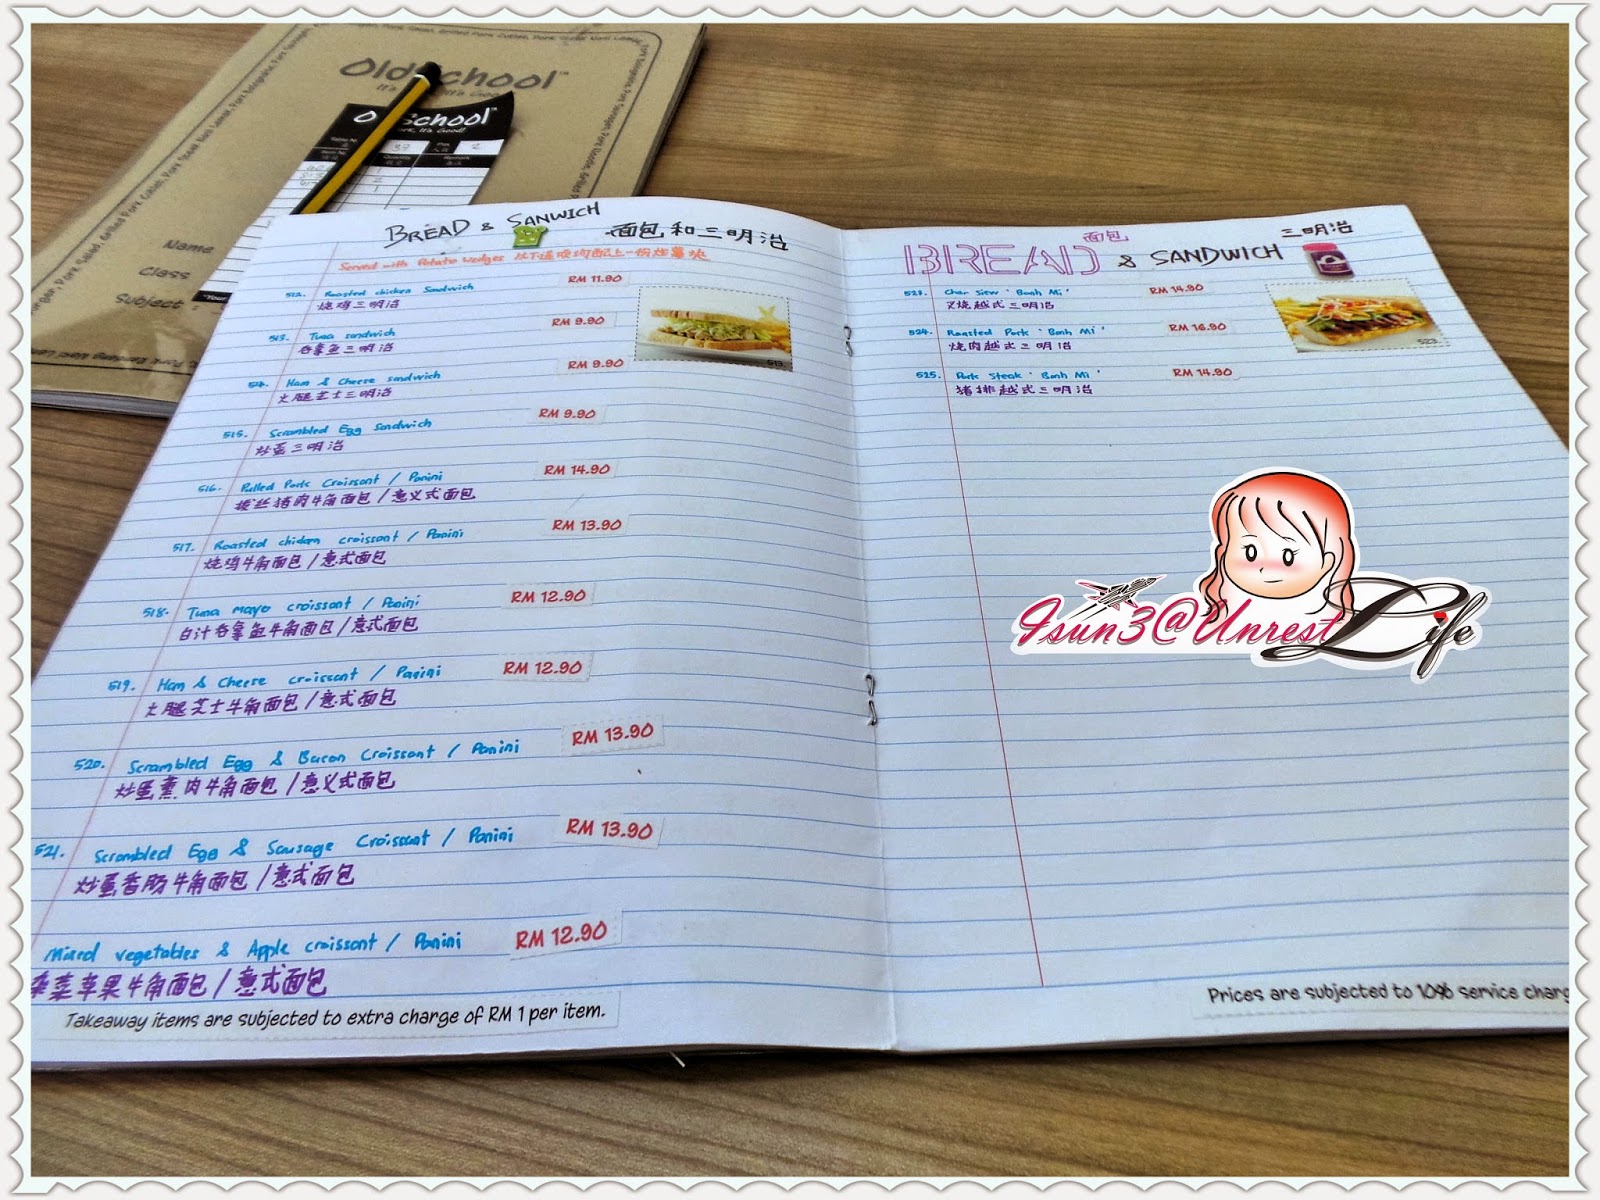 Old School™
It's Good!
Old School™
Pork, It's Good!
37
2
Name
Class
Subject
BREAD & SANWICH 面包和三明治
Served with Potato Wedges 以下送
512. Roasted chicken Sandwich RM 11.90
烧鸡三明治
513. Tuna sandwich RM 9.90
吞拿鱼三明治
514. Ham & Cheese sandwich RM 9.90
火腿芝士三明治
515. Scrambled Egg sandwich RM 9.90
炒蛋三明治
516. Pulled Pork Croissant / Panini RM 14.90
拔丝猪肉牛角面包/意义式面包
517. Roasted chicken croissant / Panini RM 13.90
烧鸡牛角面包/意式面包
518. Tuna mayo croissant / Panini RM 12.90
白汁吞拿鱼牛角面包/意式面包
519. Ham & Cheese croissant / Panini RM 12.90
火腿芝士牛角面包/意式面包
520. Scrambled Egg & Bacon Croissant / Panini RM 13.90
炒蛋熏肉牛角面包/意义式面包
521. Scrambled Egg & Sausage Croissant / Panini RM 13.90
炒蛋香肠牛角面包/意式面包
Mixed vegetables & Apple croissant / Panini RM 12.90
杂菜苹果牛角面包/意式面包
Takeaway items are subjected to extra charge of RM 1 per item.
513.
面包 三明治
BREAD & SANDWICH
523. Char Siew 'Banh Mi' RM 14.90
叉烧越式三明治
524. Roasted Pork 'Banh Mi' RM 16.90
烧肉越式三明治
525. Pork Steak 'Banh Mi' RM 14.90
猪排越式三明治
523.
Isun3@UnrestLife
Prices are subjected to 10% service charg